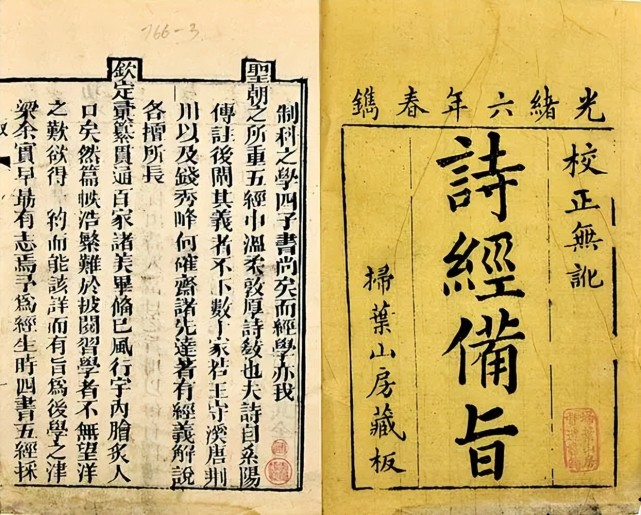 光緒六年春鐫
校正無訛
詩經備旨
掃葉山房藏板
766-3
制科之學四子書尚矣而經學亦我
聖朝之所重五經中溫柔敦厚詩敎也夫詩自紫陽
傳註後闡其義者不下數十家若王守溪唐荆
川以及錢秀峰何確齋諸先達著有經義解說
各擅所長
欽定彚纂貫通百家諸美畢俻已風行宇內膾炙人
口矣然篇帙浩繁難於披閱習學者不無望洋
之歎欲得一約而能該詳而有旨爲後學之津
梁余實早有志焉予爲經生時四書五經採